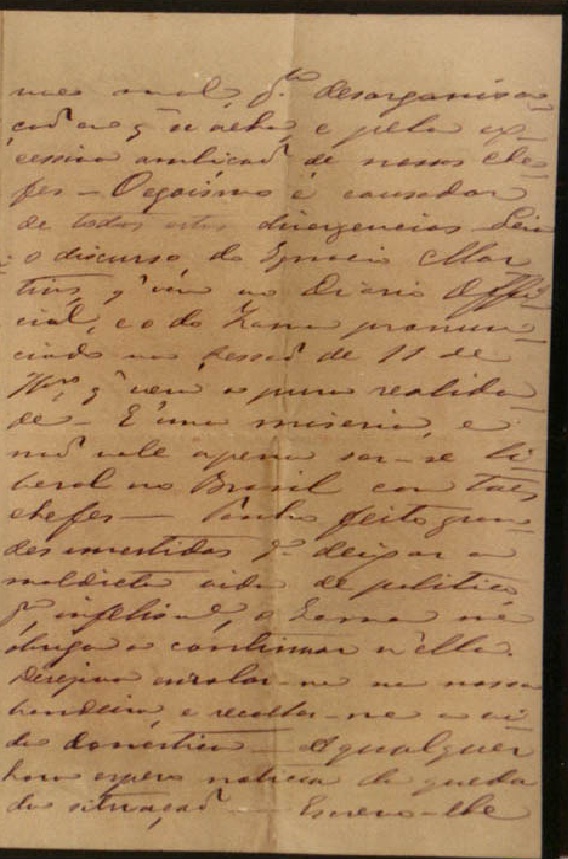 mes mal, p.la desorganisa-
çaõ em q̃ se acha, e pela ex-
cessiva ambiçaõ de nossos che-
fes — O egoismo é causador
de todas estas divergencias. Leia
o discurso do Ignacio Mar
tins, q̃ vem no Diario Offi-
cial, e o do Zama pronun-
ciado na sessaõ de 11 de
q̃ verá a pura realida-
de — É uma miseria, e
naõ vale a pena ser-se li-
beral no Brasil com taes
chefes — Tenho feito gran-
des investidas p.a deixar a
maldicta vida de politica
infelism.e, o Zama me
obriga a continuar n'ella.
Desejava enrolar-me na nossa
bandeira, e recolher-me a vi-
da domestica — A qualquer
hora espero noticia da queda
da situaçaõ —